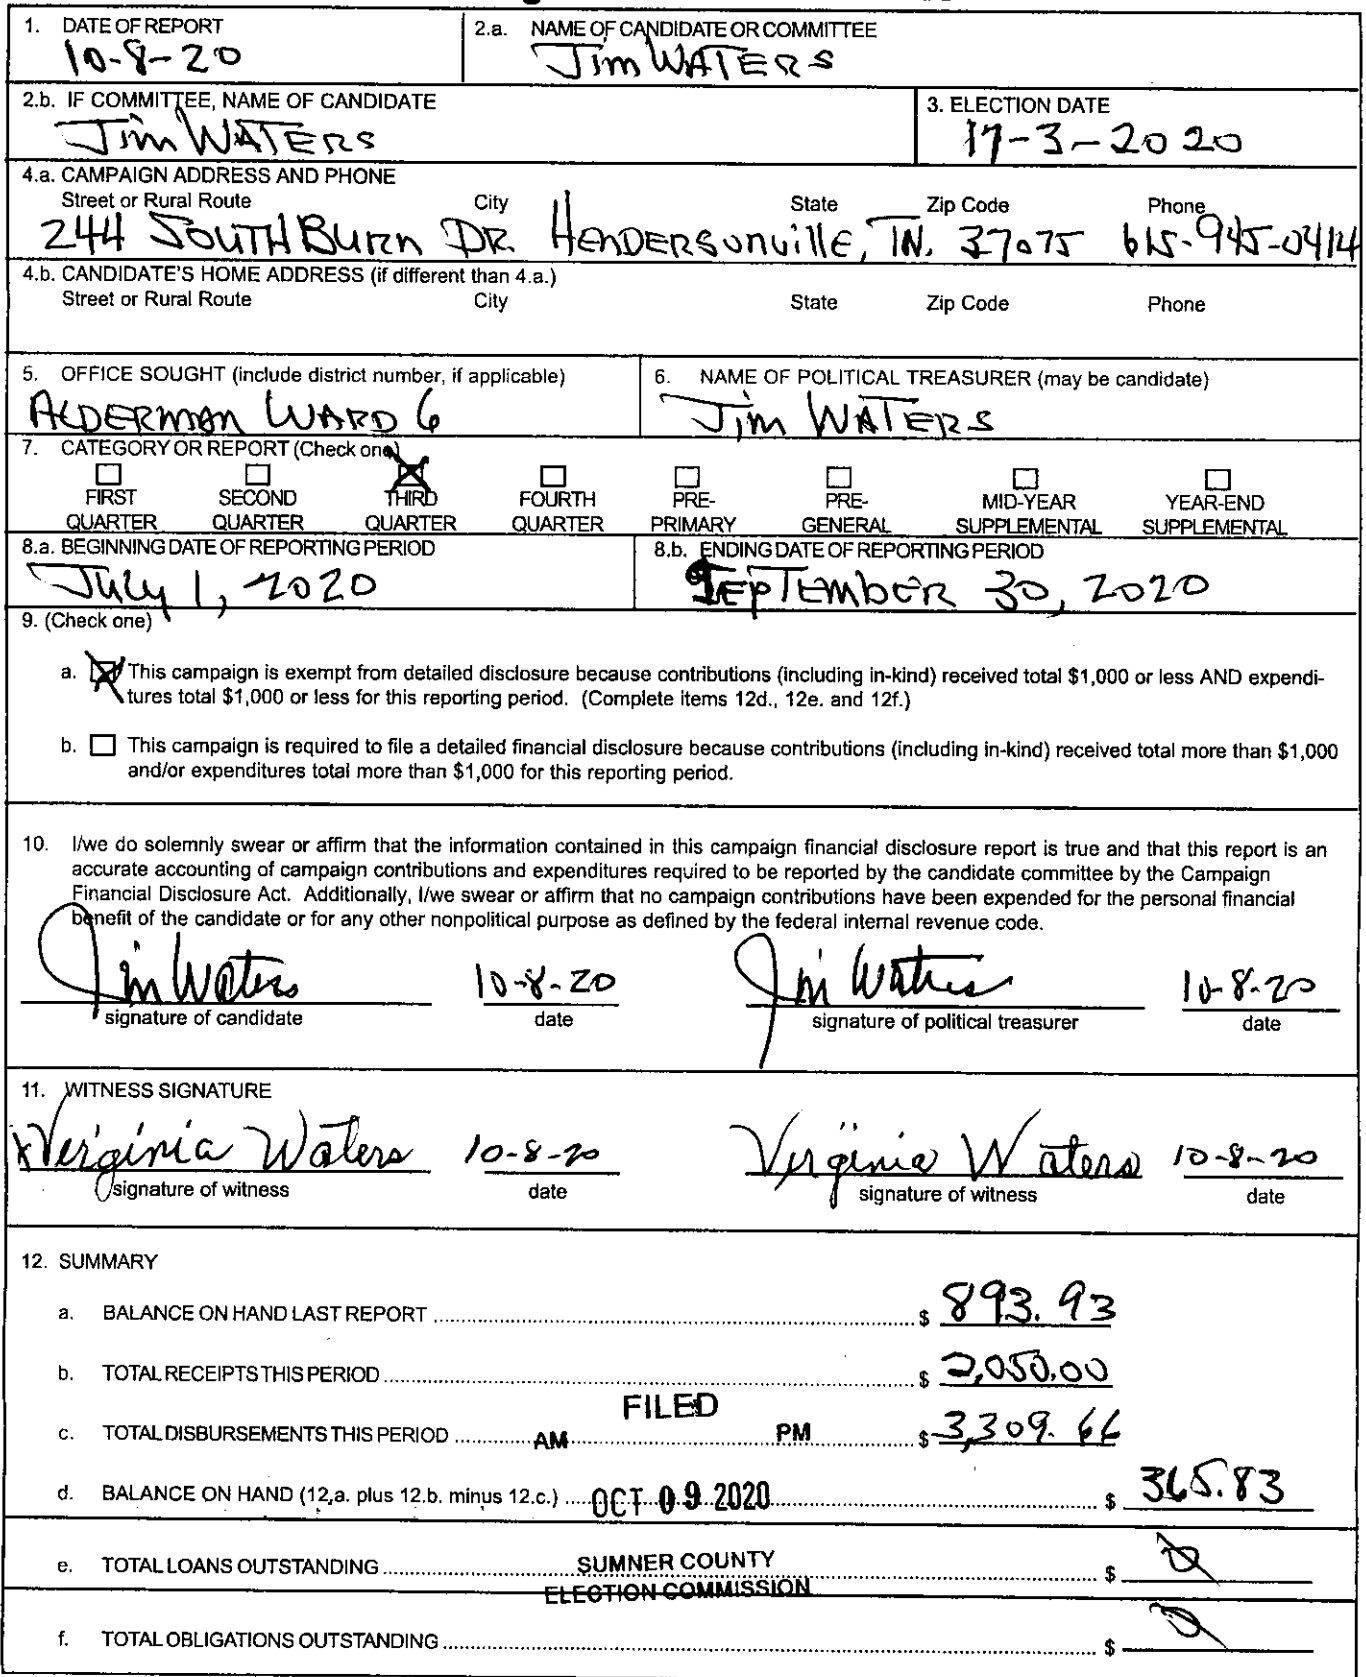 1. DATE OF REPORT
10-8-20
2.a. NAME OF CANDIDATE OR COMMITTEE
Jim WATERS
2.b. IF COMMITTEE, NAME OF CANDIDATE
Jim WATERS
3. ELECTION DATE
11-3-2020
4.a. CAMPAIGN ADDRESS AND PHONE
Street or Rural Route City State Zip Code Phone
244 SOUTHBURN DR. HENDERSONVILLE, TN. 37075 615-945-0414
4.b. CANDIDATE'S HOME ADDRESS (if different than 4.a.)
Street or Rural Route City State Zip Code Phone
5. OFFICE SOUGHT (include district number, if applicable)
ALDERMAN WARD 6
6. NAME OF POLITICAL TREASURER (may be candidate)
Jim WATERS
7. CATEGORY OR REPORT (Check one)
FIRST QUARTER
SECOND QUARTER
THIRD QUARTER
FOURTH QUARTER
PRE-PRIMARY
PRE-GENERAL
MID-YEAR SUPPLEMENTAL
YEAR-END SUPPLEMENTAL
8.a. BEGINNING DATE OF REPORTING PERIOD
July 1, 2020
8.b. ENDING DATE OF REPORTING PERIOD
SEPTEMBER 30, 2020
9. (Check one)
a. This campaign is exempt from detailed disclosure because contributions (including in-kind) received total $1,000 or less AND expendi-
tures total $1,000 or less for this reporting period. (Complete items 12d., 12e. and 12f.)
b. This campaign is required to file a detailed financial disclosure because contributions (including in-kind) received total more than $1,000
and/or expenditures total more than $1,000 for this reporting period.
10. I/we do solemnly swear or affirm that the information contained in this campaign financial disclosure report is true and that this report is an
accurate accounting of campaign contributions and expenditures required to be reported by the candidate committee by the Campaign
Financial Disclosure Act. Additionally, I/we swear or affirm that no campaign contributions have been expended for the personal financial
benefit of the candidate or for any other nonpolitical purpose as defined by the federal internal revenue code.
Jim Waters 10-8-20 Jim Waters 10-8-20
signature of candidate date signature of political treasurer date
11. WITNESS SIGNATURE
x Verginia Waters 10-8-20 Verginia Waters 10-8-20
signature of witness date signature of witness date
12. SUMMARY
a. BALANCE ON HAND LAST REPORT $ 893.93
b. TOTAL RECEIPTS THIS PERIOD $ 2,050.00
FILED
c. TOTAL DISBURSEMENTS THIS PERIOD AM PM $ 3,309.66
d. BALANCE ON HAND (12.a. plus 12.b. minus 12.c.) OCT 09 2020 $ 365.83
e. TOTAL LOANS OUTSTANDING SUMNER COUNTY $ 0
ELECTION COMMISSION
f. TOTAL OBLIGATIONS OUTSTANDING $ 0